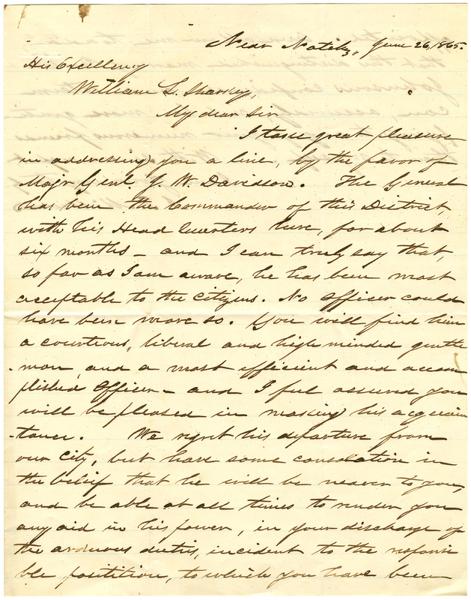 Near Natchz, June 26/1865.
His Excellency
William L. Sharkey,
My dear Sir
I take great pleasure
in addressing you a line, by the favor of
Major Genl. J. W. Davidson. The General
has been the Commander of this District,
with his Head Quarters here, for about
six months – and I can truly say that,
so far as I am aware, he has been most
acceptable to the Citizens. No Officer could
have been more so. You will find him
a courtious, liberal and high minded gentle
-man, and a most efficient and accom
plished Officer – and I feel assured you
will be pleased in making his acquain
-tance. We regret his departure from
our City, but have some consolation in
the belief that he will be nearer to you,
and be able at all times to render you
any aid in his power, in your discharge of
the arduous duties, incident to the responsi
ble position, to which you have been